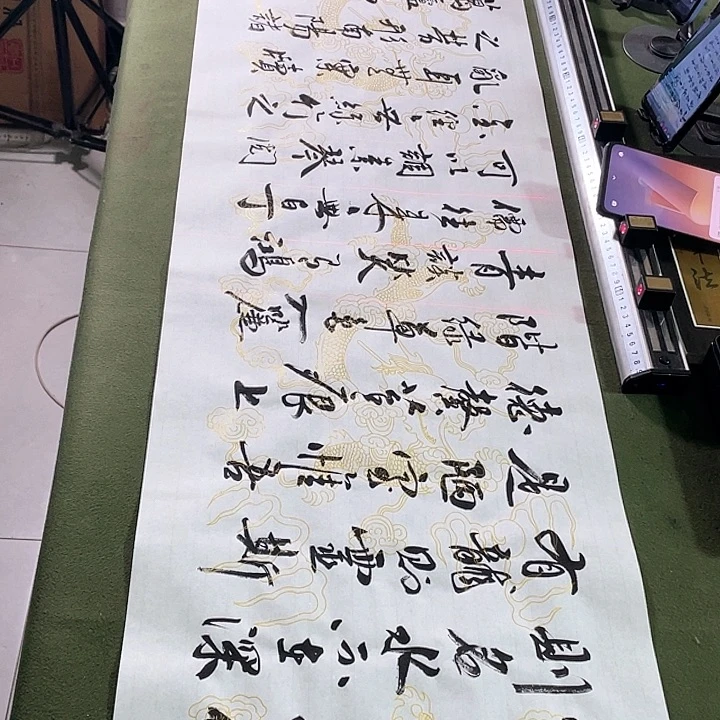 則名水不在深
有龍則靈斯
是陋室惟吾
德馨苔痕上
階綠草色入簾
青談笑有鴻
儒往來無白丁
可以調素琴閱
金經無絲竹之
亂耳無案牘
之勞形南陽諸